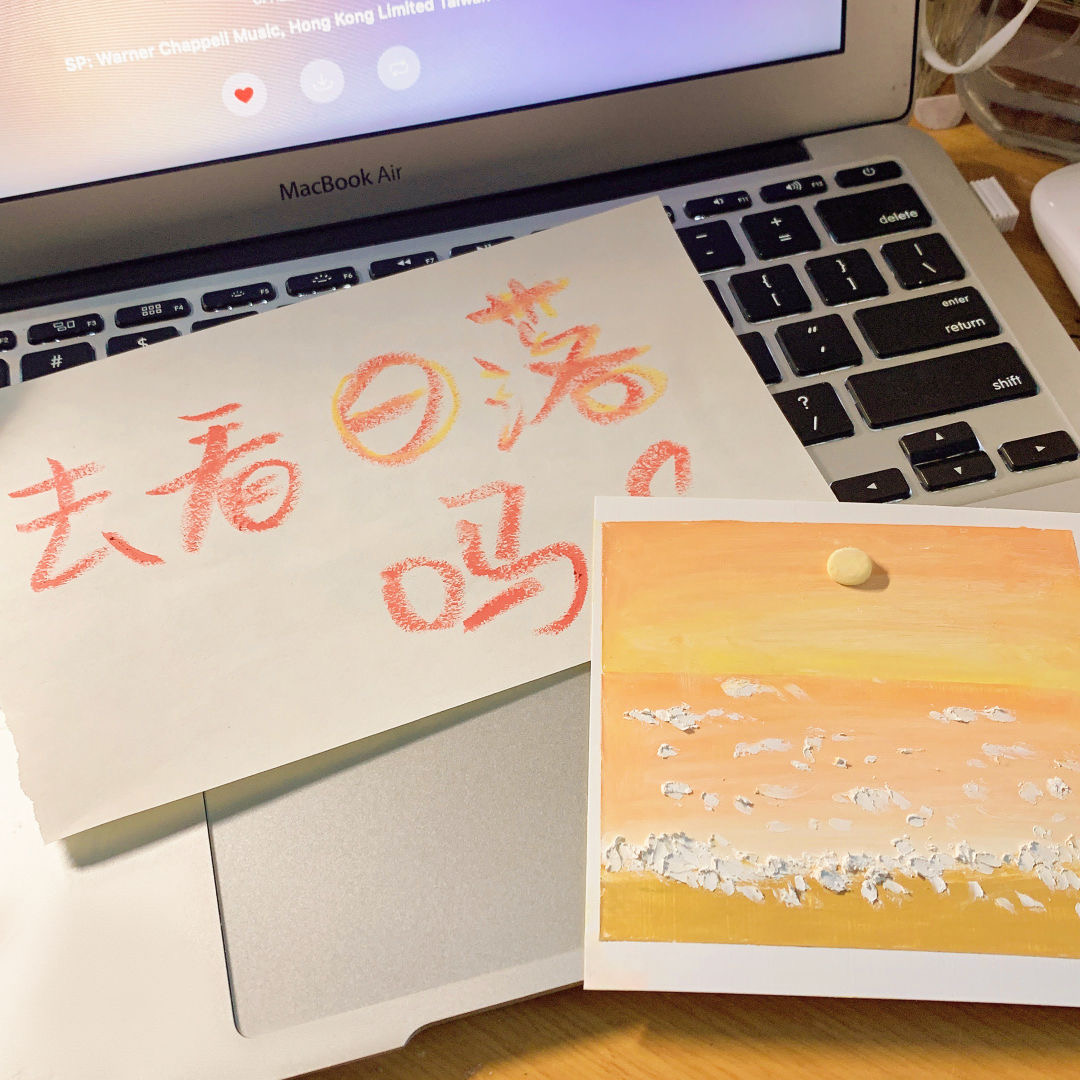 SP: Warner Chappell Music, Hong Kong Limited Taiwan
MacBook Air
F3
F4
F5
F6
F7
F11
F12
delete
#
$
+
=
{
[
}
]
|
\
enter
return
"
'
shift
?
/
去看日落
吗?